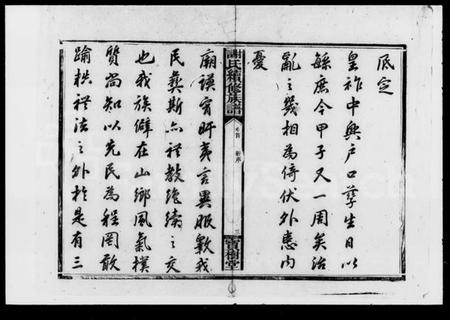 底定
皇祚中興戶口孳生日以
蘇庶今甲子又一周矣治
亂之幾相為倚伏外患內
憂
謝氏續修族譜
卷首
新序
寶樹堂
廟謨宵旰夷言異服數我
民彝斯亦禮教絕續之交
也我族僻在山鄉風氣樸
質尚知以先民為程罔敢
踰秩禮法之外於是有三